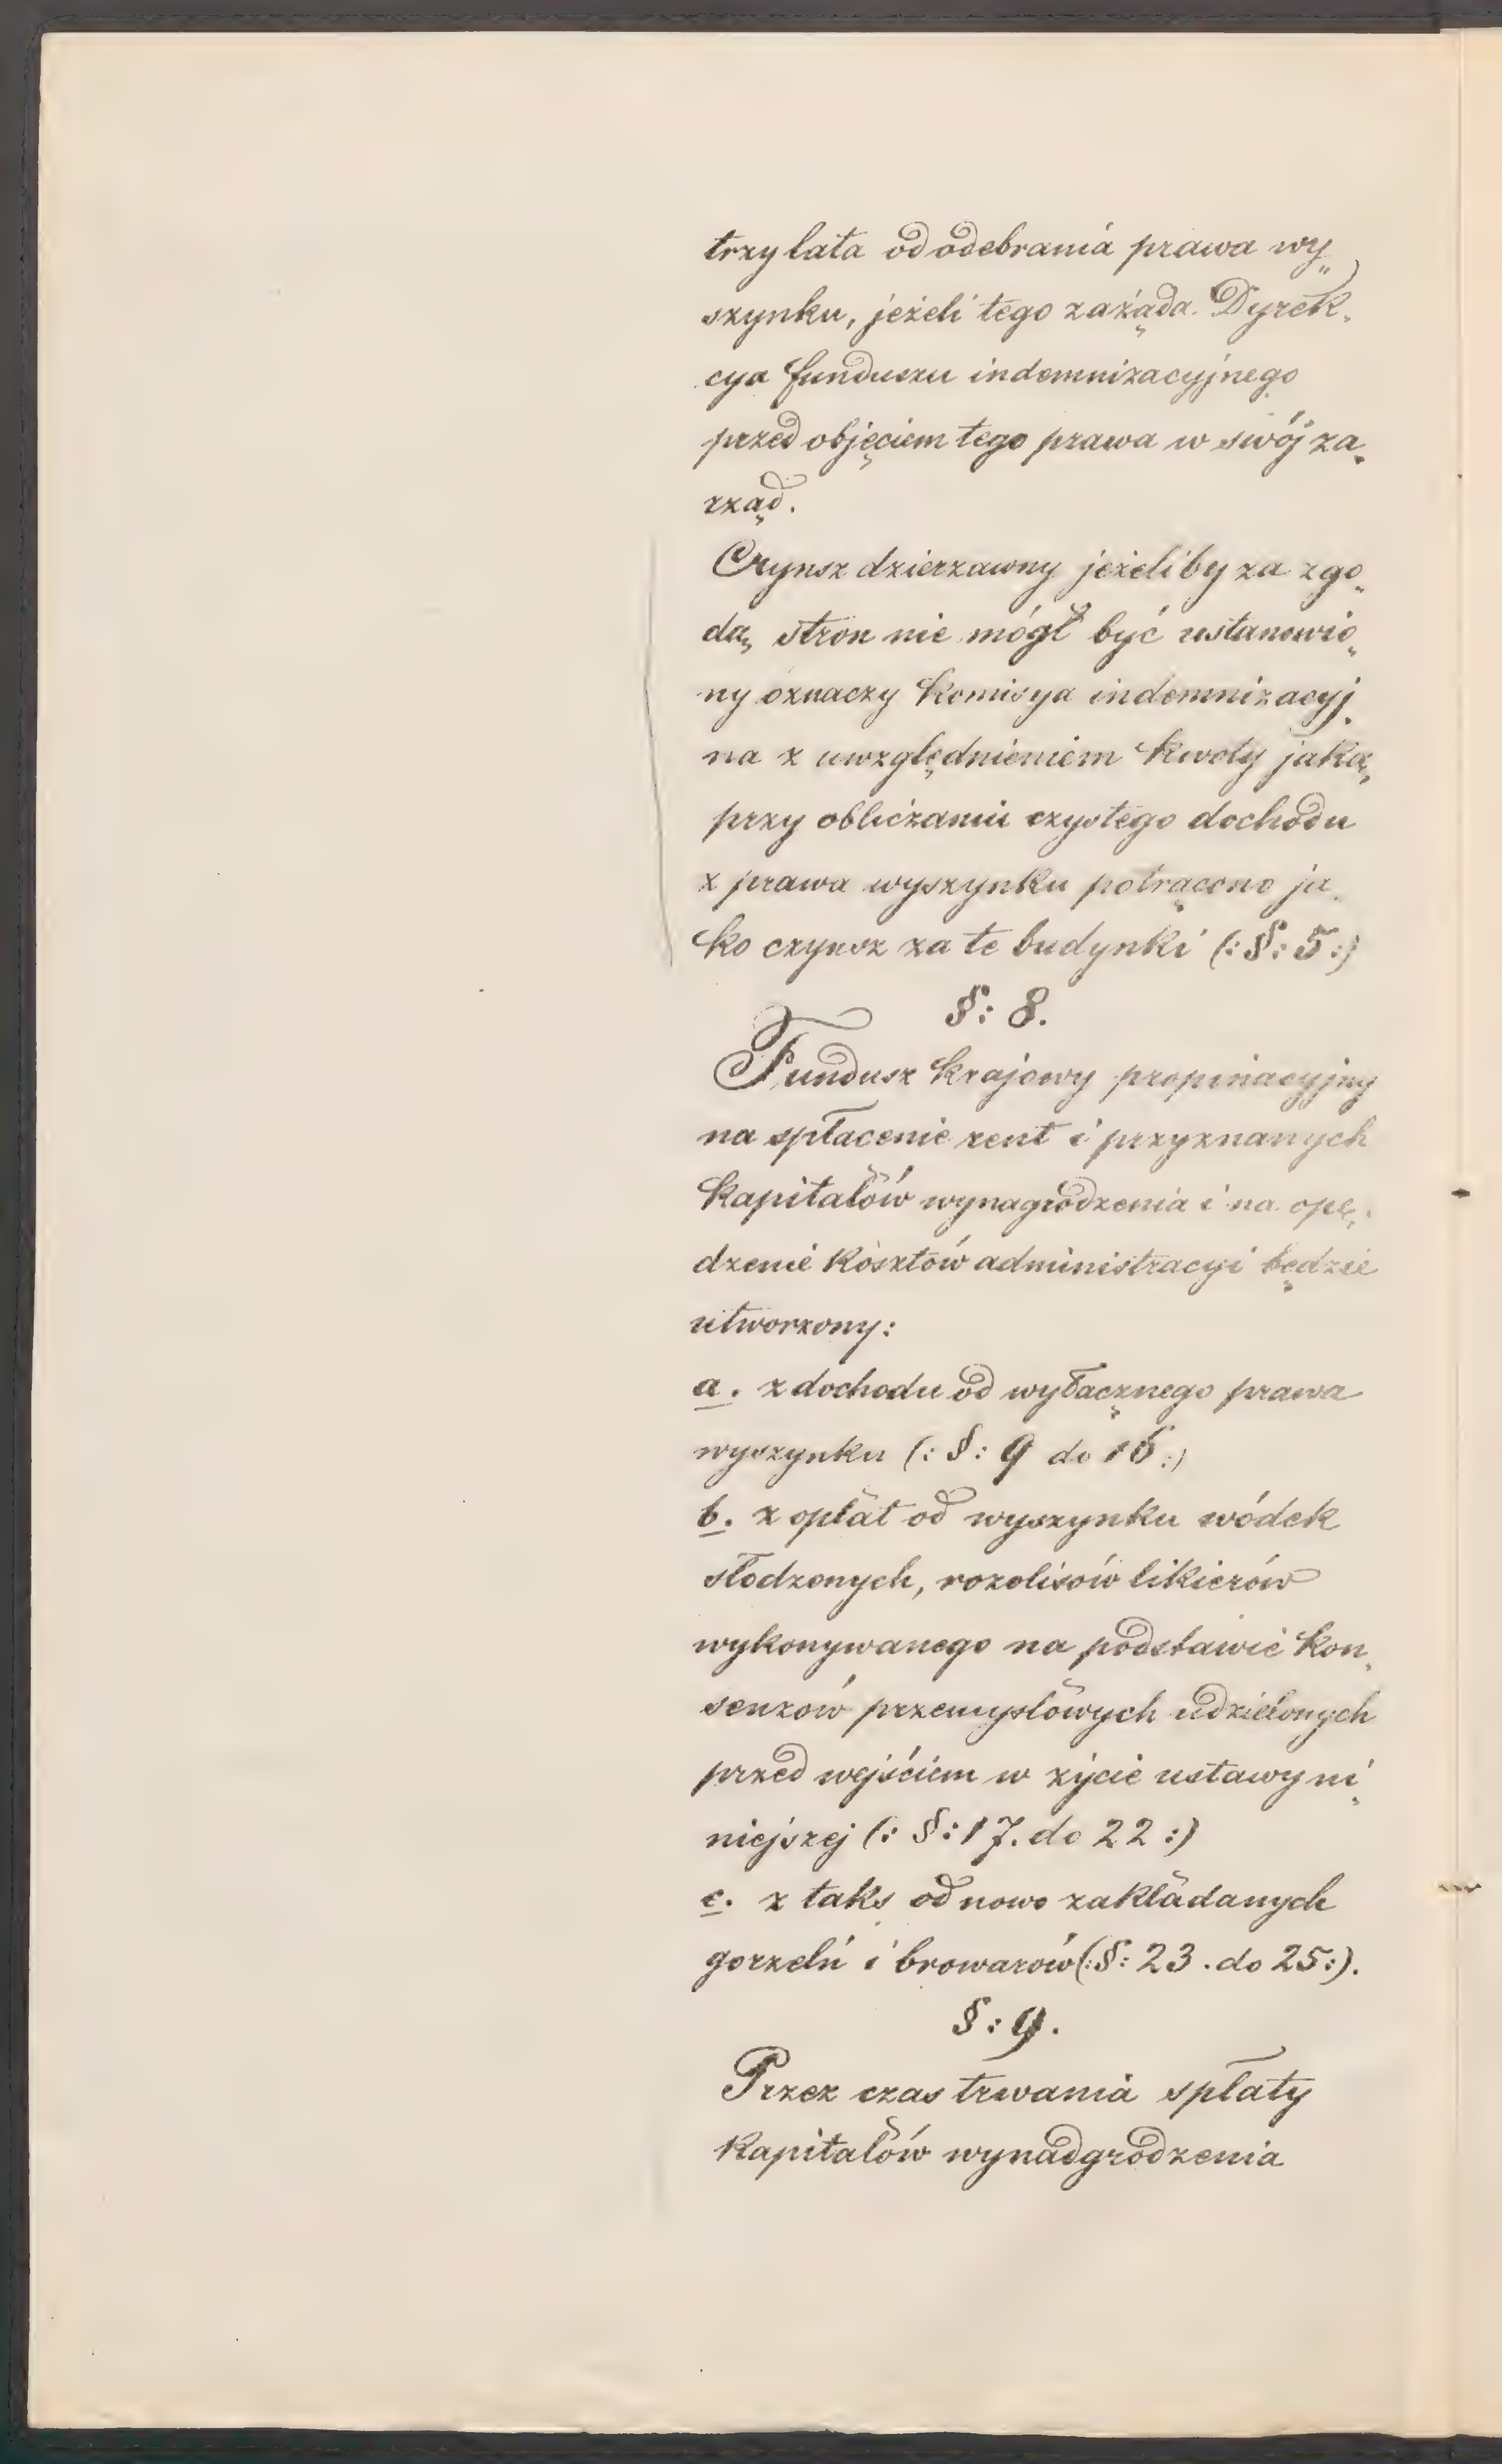 trzy lata od odebrania prawa wy„
szynku, jeżeli tego zażąda Dyrek„
cya funduszu indemnizacyjnego
przed objęciem tego prawa w swój za„
rząd.
Czynsz dzierzawny jeżeliby za zgo„
dą stron nie mógł być ustanowio„
ny oznaczy Komisya indemnizacyj„
na z uwzględnieniem kwoty jaką
przy obliczaniu czystego dochodu
z prawa wyszynku potrącono ja„
ko czynsz za te budynki (: §: 5 :)
§: 8.
Fundusz krajowy propinacyjny
na spłacenie rent i przyznanych
kapitałów wynagrodzenia i na opę„
dzenie kosztów administracyi będzie
utworzony:
a. z dochodu od wyłącznego prawa
wyszynku (: §: 9 do 16 :)
b. z opłat od wyszynku wódek
słodzonych, rozolisów likierów
wykonywanego na podstawie kon„
senzów przemysłowych udzielonych
przed wejściem w życie ustawy ni„
niejszej (: §: 17. do 22 :)
c. z taks od nowo zakładanych
gorzelń i browarów (: §: 23. do 25 :).
§: 9.
Przez czas trwania spłaty
kapitałów wynadgrodzenia